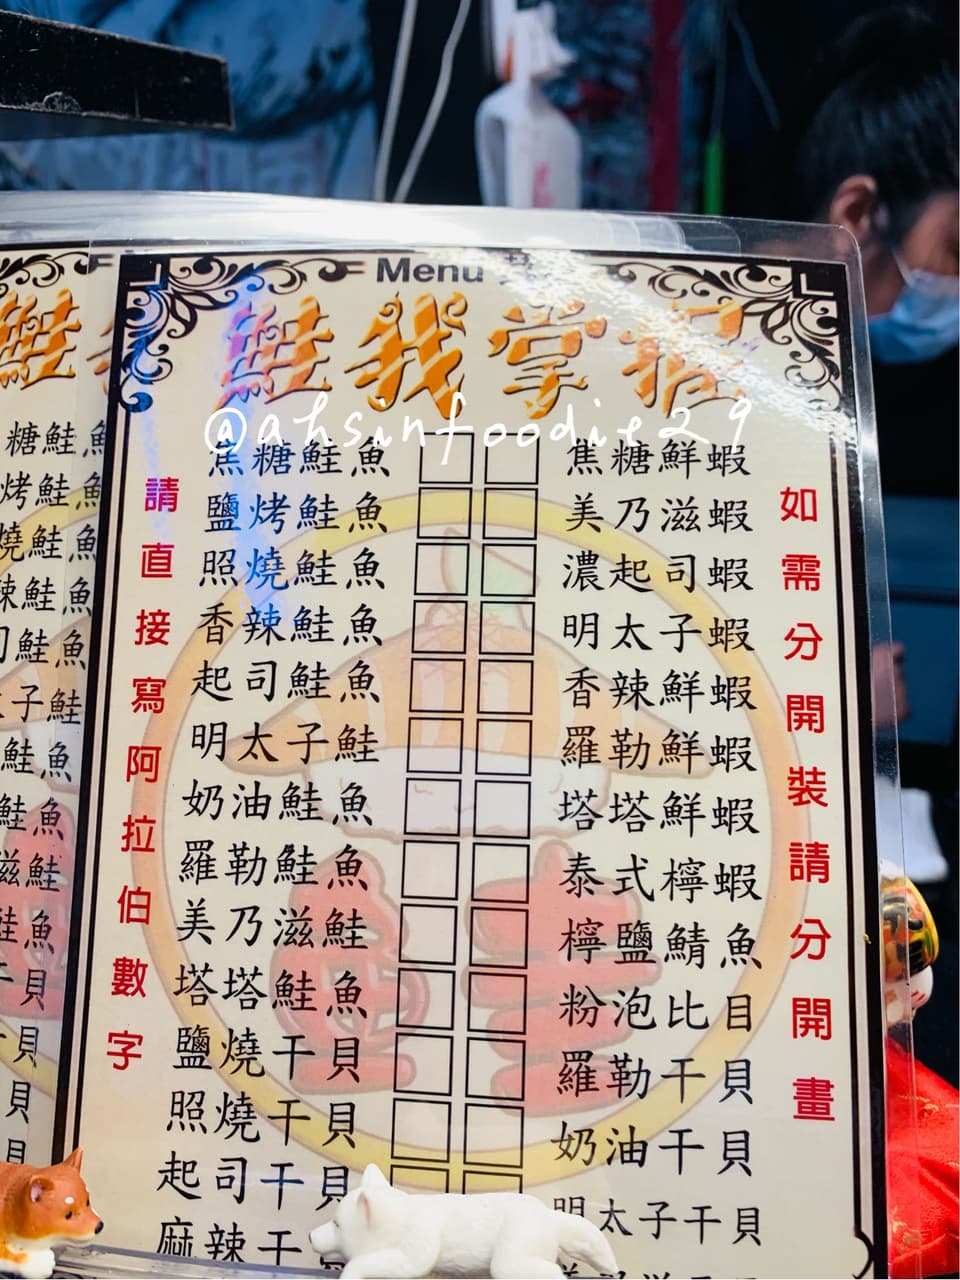 Menu
鮭我掌握
@ahsinfoodie29
請直接寫阿拉伯數字
焦糖鮭魚
鹽烤鮭魚
照燒鮭魚
香辣鮭魚
起司鮭魚
明太子鮭
奶油鮭魚
羅勒鮭魚
美乃滋鮭
塔塔鮭魚
鹽燒干貝
照燒干貝
起司干貝
麻辣干
焦糖鮮蝦
美乃滋蝦
濃起司蝦
明太子蝦
香辣鮮蝦
羅勒鮮蝦
塔塔鮮蝦
泰式檸蝦
檸鹽鯖魚
粉泡比目
羅勒干貝
奶油干貝
明太子干貝
如需分開裝請分開畫
鮭
糖鮭魚
烤鮭魚
燒鮭魚
辣鮭魚
司鮭魚
子鮭
鮭魚
鮭魚
滋鮭
鮭魚
干貝
貝
貝